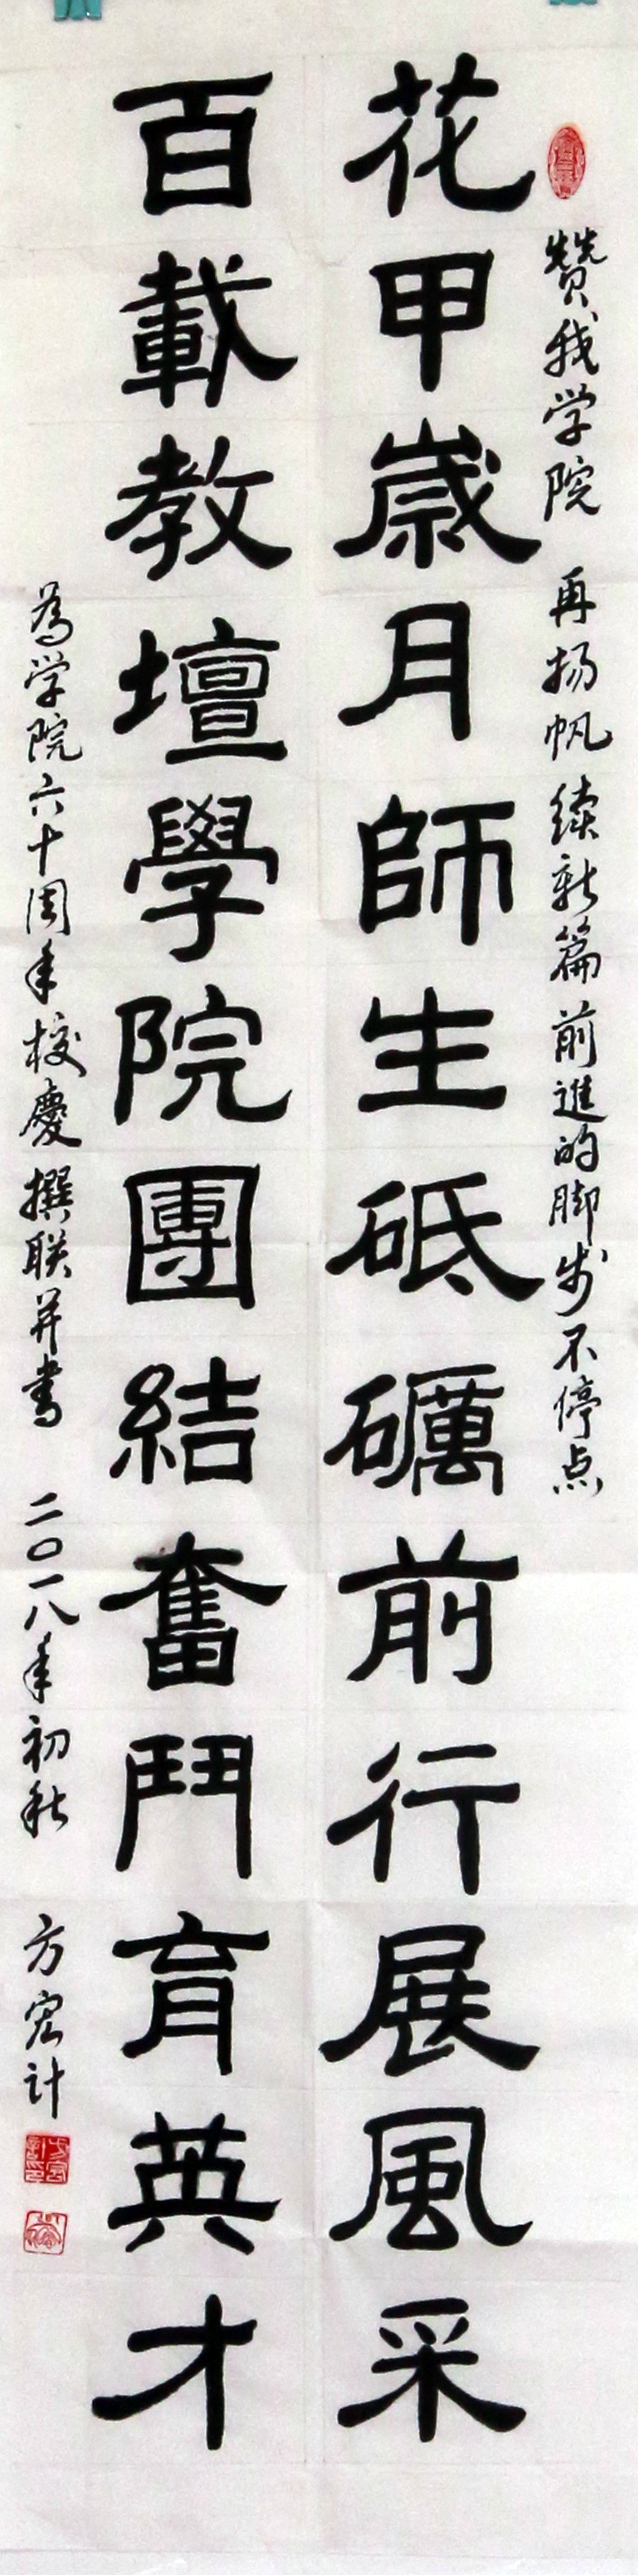 贊我学院 再扬帆 续新篇 前進的脚步不停点
花甲歲月師生砥礪前行展風采
百載教壇學院團結奮鬥育英才
為学院六十周年校慶 撰联并書 二〇一八年初秋 方宏计